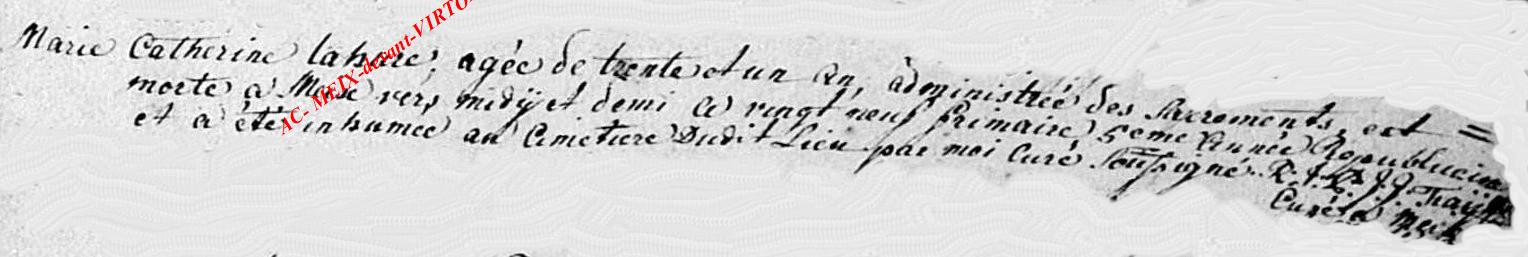 Marie Catherine lahure, agée de trente et un an, administrée des Sacrements, est =
morte a Meix vers midÿ et demi le vingt neuf frimaire 5eme Année Republicaine
et a été inhumée au Cimetiere Dudit Lieu par moi Curé Soussigné. R. I. P. J. J.
Curé a Meix
AC- MEIX-devant-VIRTO